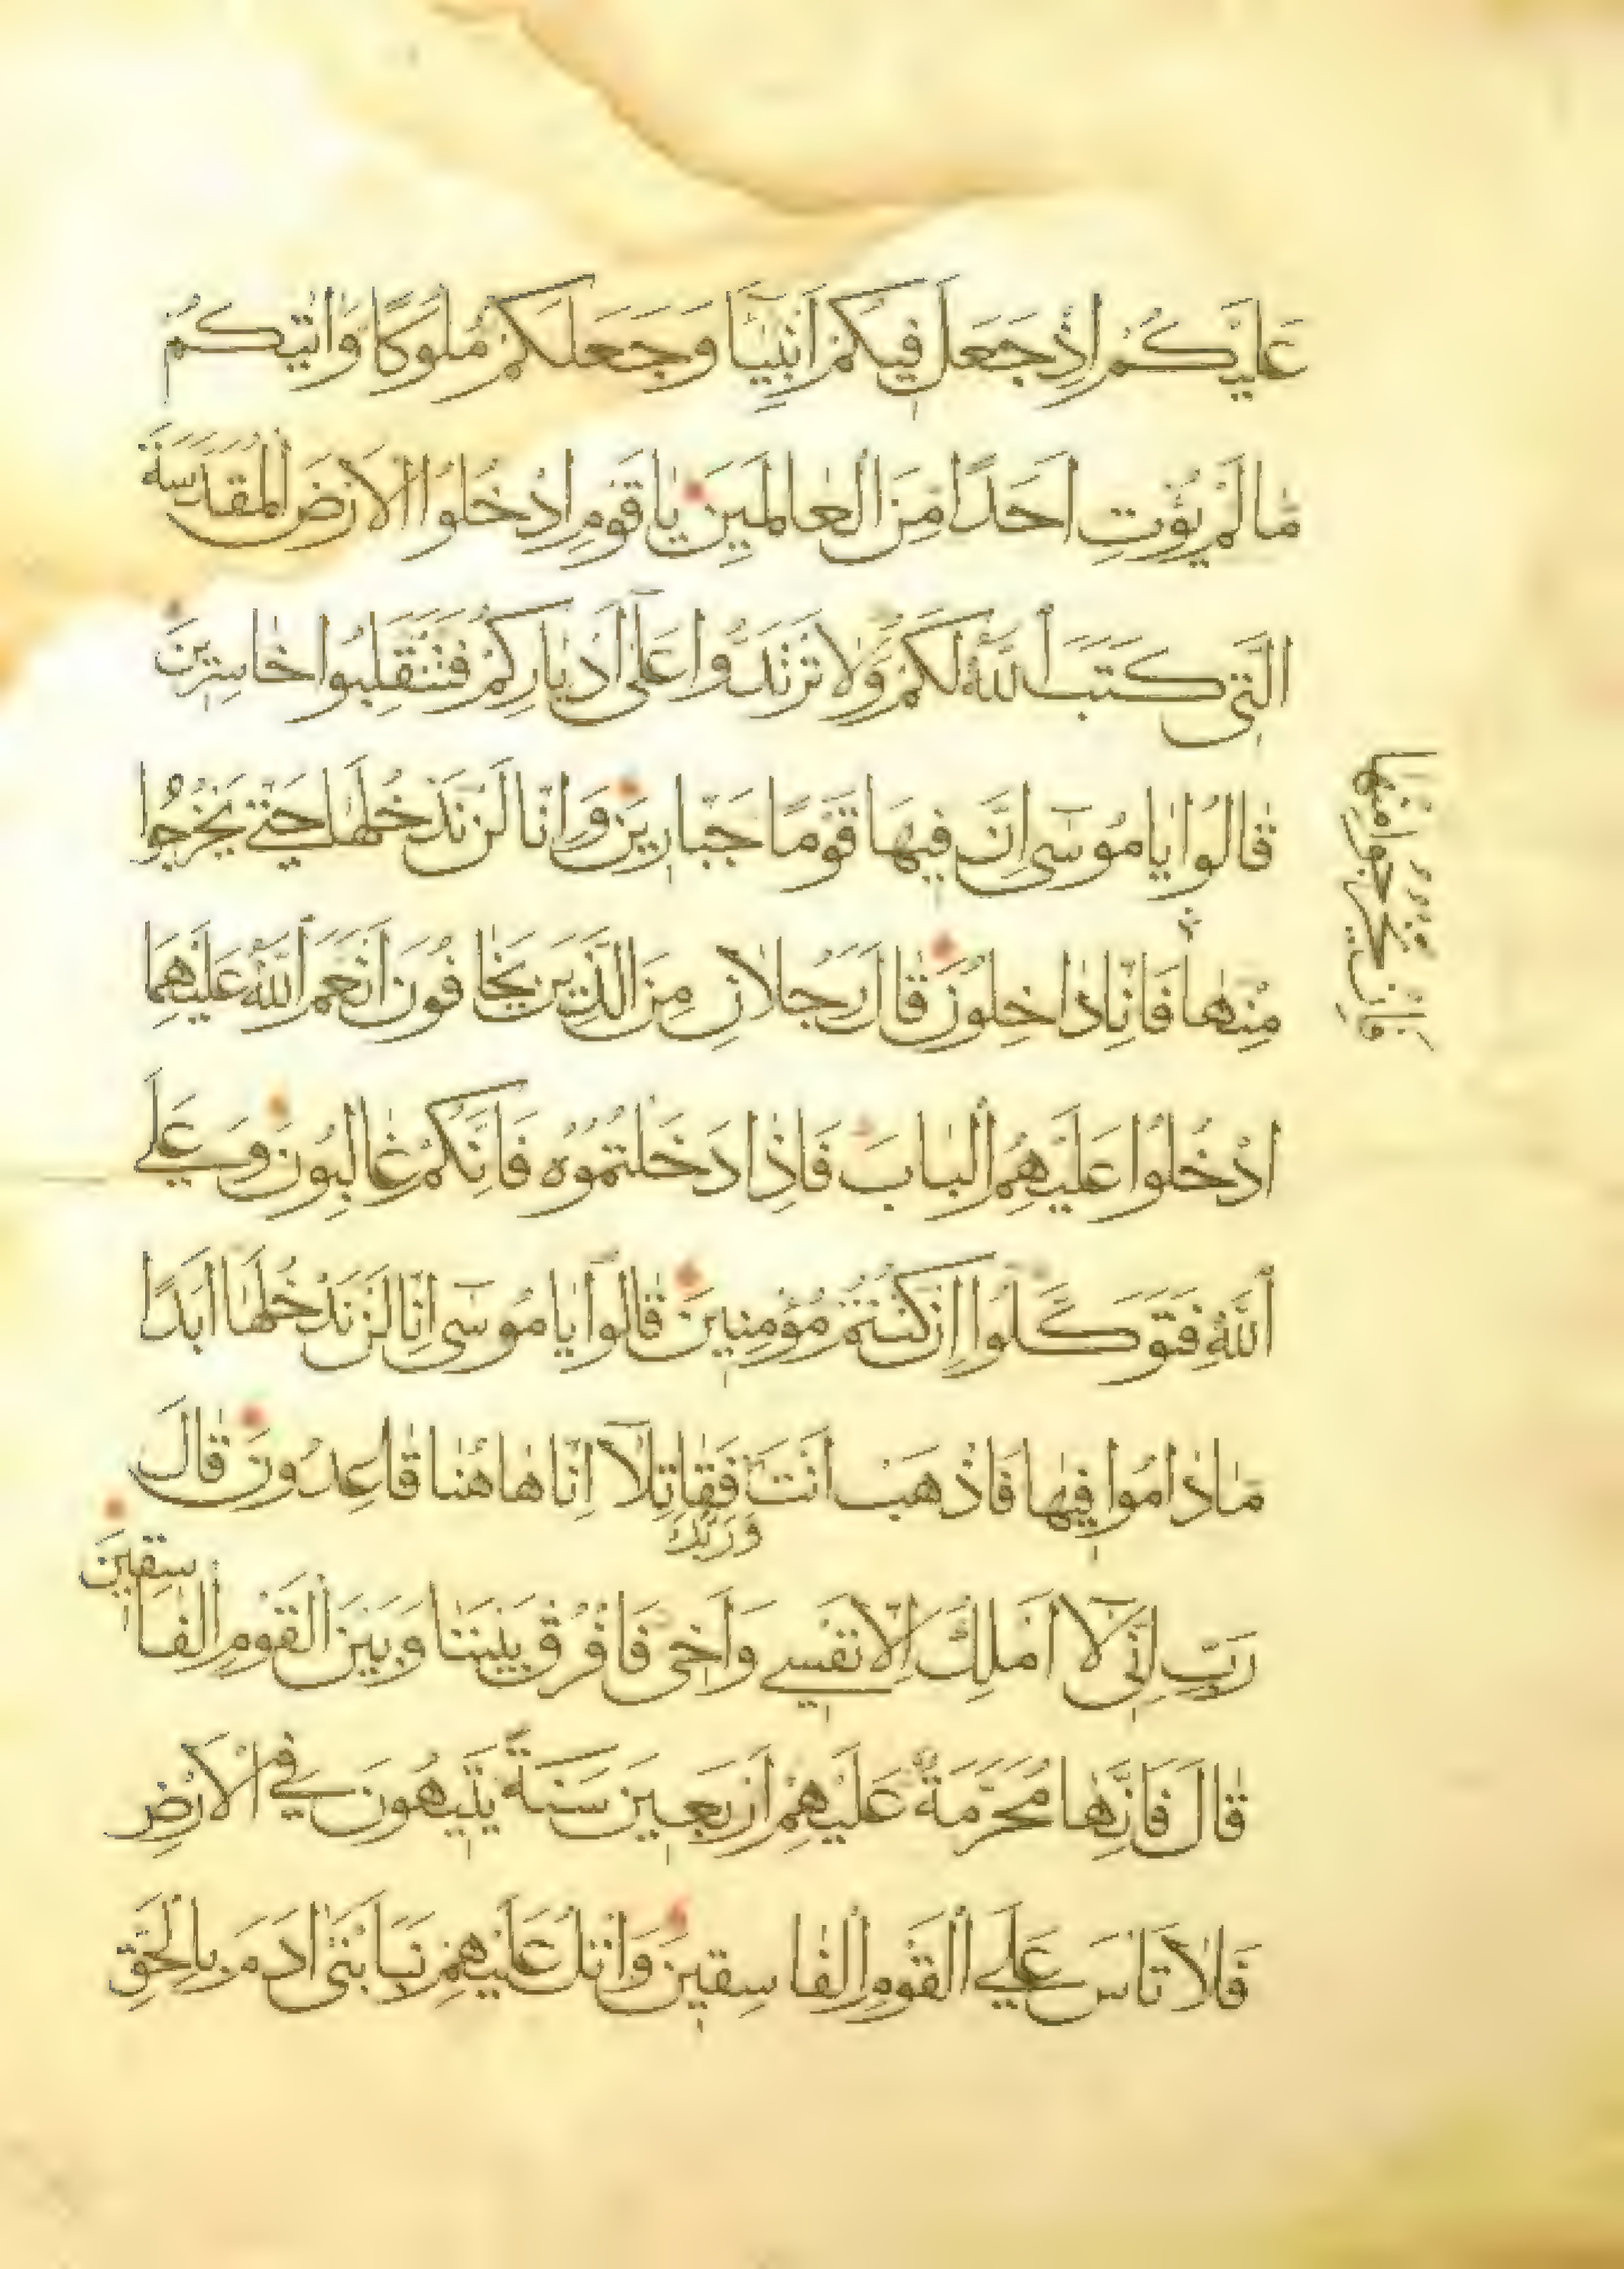 عَلَيْكُمْ اِذْ جَعَلَ فِيكُمْ اَنْبِيَٓاءَ وَجَعَلَكُمْ مُلُوكًا وَاٰتٰيكُمْ
مَا لَمْ يُؤْتِ اَحَدًا مِنَ الْعَالَمِينَ يَا قَوْمِ ادْخُلُوا الْاَرْضَ الْمُقَدَّسَةَ
الَّتِي كَتَبَ اللّٰهُ لَكُمْ وَلَا تَرْتَدُّوا عَلٰٓى اَدْبَارِكُمْ فَتَنْقَلِبُوا خَاسِرِينَ
قَالُوا يَا مُوسٰٓى اِنَّ فِيهَا قَوْمًا جَبَّارِينَ وَاِنَّا لَنْ نَدْخُلَهَا حَتّٰى يَخْرُجُوا
مِنْهَا فَاِنَّا دَاخِلُونَ قَالَ رَجُلَانِ مِنَ الَّذِينَ يَخَافُونَ اَنْعَمَ اللّٰهُ عَلَيْهِمَا
فَاِنْ يَخْرُجُوا مِنْهَا
ادْخُلُوا عَلَيْهِمُ الْبَابَ فَاِذَا دَخَلْتُمُوهُ فَاِنَّكُمْ غَالِبُونَ وَعَلَى
اللّٰهِ فَتَوَكَّلُوا اِنْ كُنْتُمْ مُؤْمِنِينَ قَالُوا يَا مُوسٰٓى اِنَّا لَنْ نَدْخُلَهَا اَبَدًا
مَا دَامُوا فِيهَا فَاذْهَبْ اَنْتَ فَقَاتِلَٓا اِنَّا هَاهُنَا قَاعِدُونَ قَالَ
وَرَبُّكَ
رَبِّ اِنِّي لَٓا اَمْلِكُ اِلَّا نَفْسِي وَاَخِي فَافْرُقْ بَيْنَنَا وَبَيْنَ الْقَوْمِ الْفَا
سِقِينَ
قَالَ فَاِنَّهَا مُحَرَّمَةٌ عَلَيْهِمْ اَرْبَعِينَ سَنَةً يَتِيهُونَ فِي الْاَرْضِ
فَلَا تَاْسَ عَلَى الْقَوْمِ الْفَاسِقِينَ وَاتْلُ عَلَيْهِمْ نَبَاَ ابْنَيْ اٰدَمَ بِالْحَقِّ